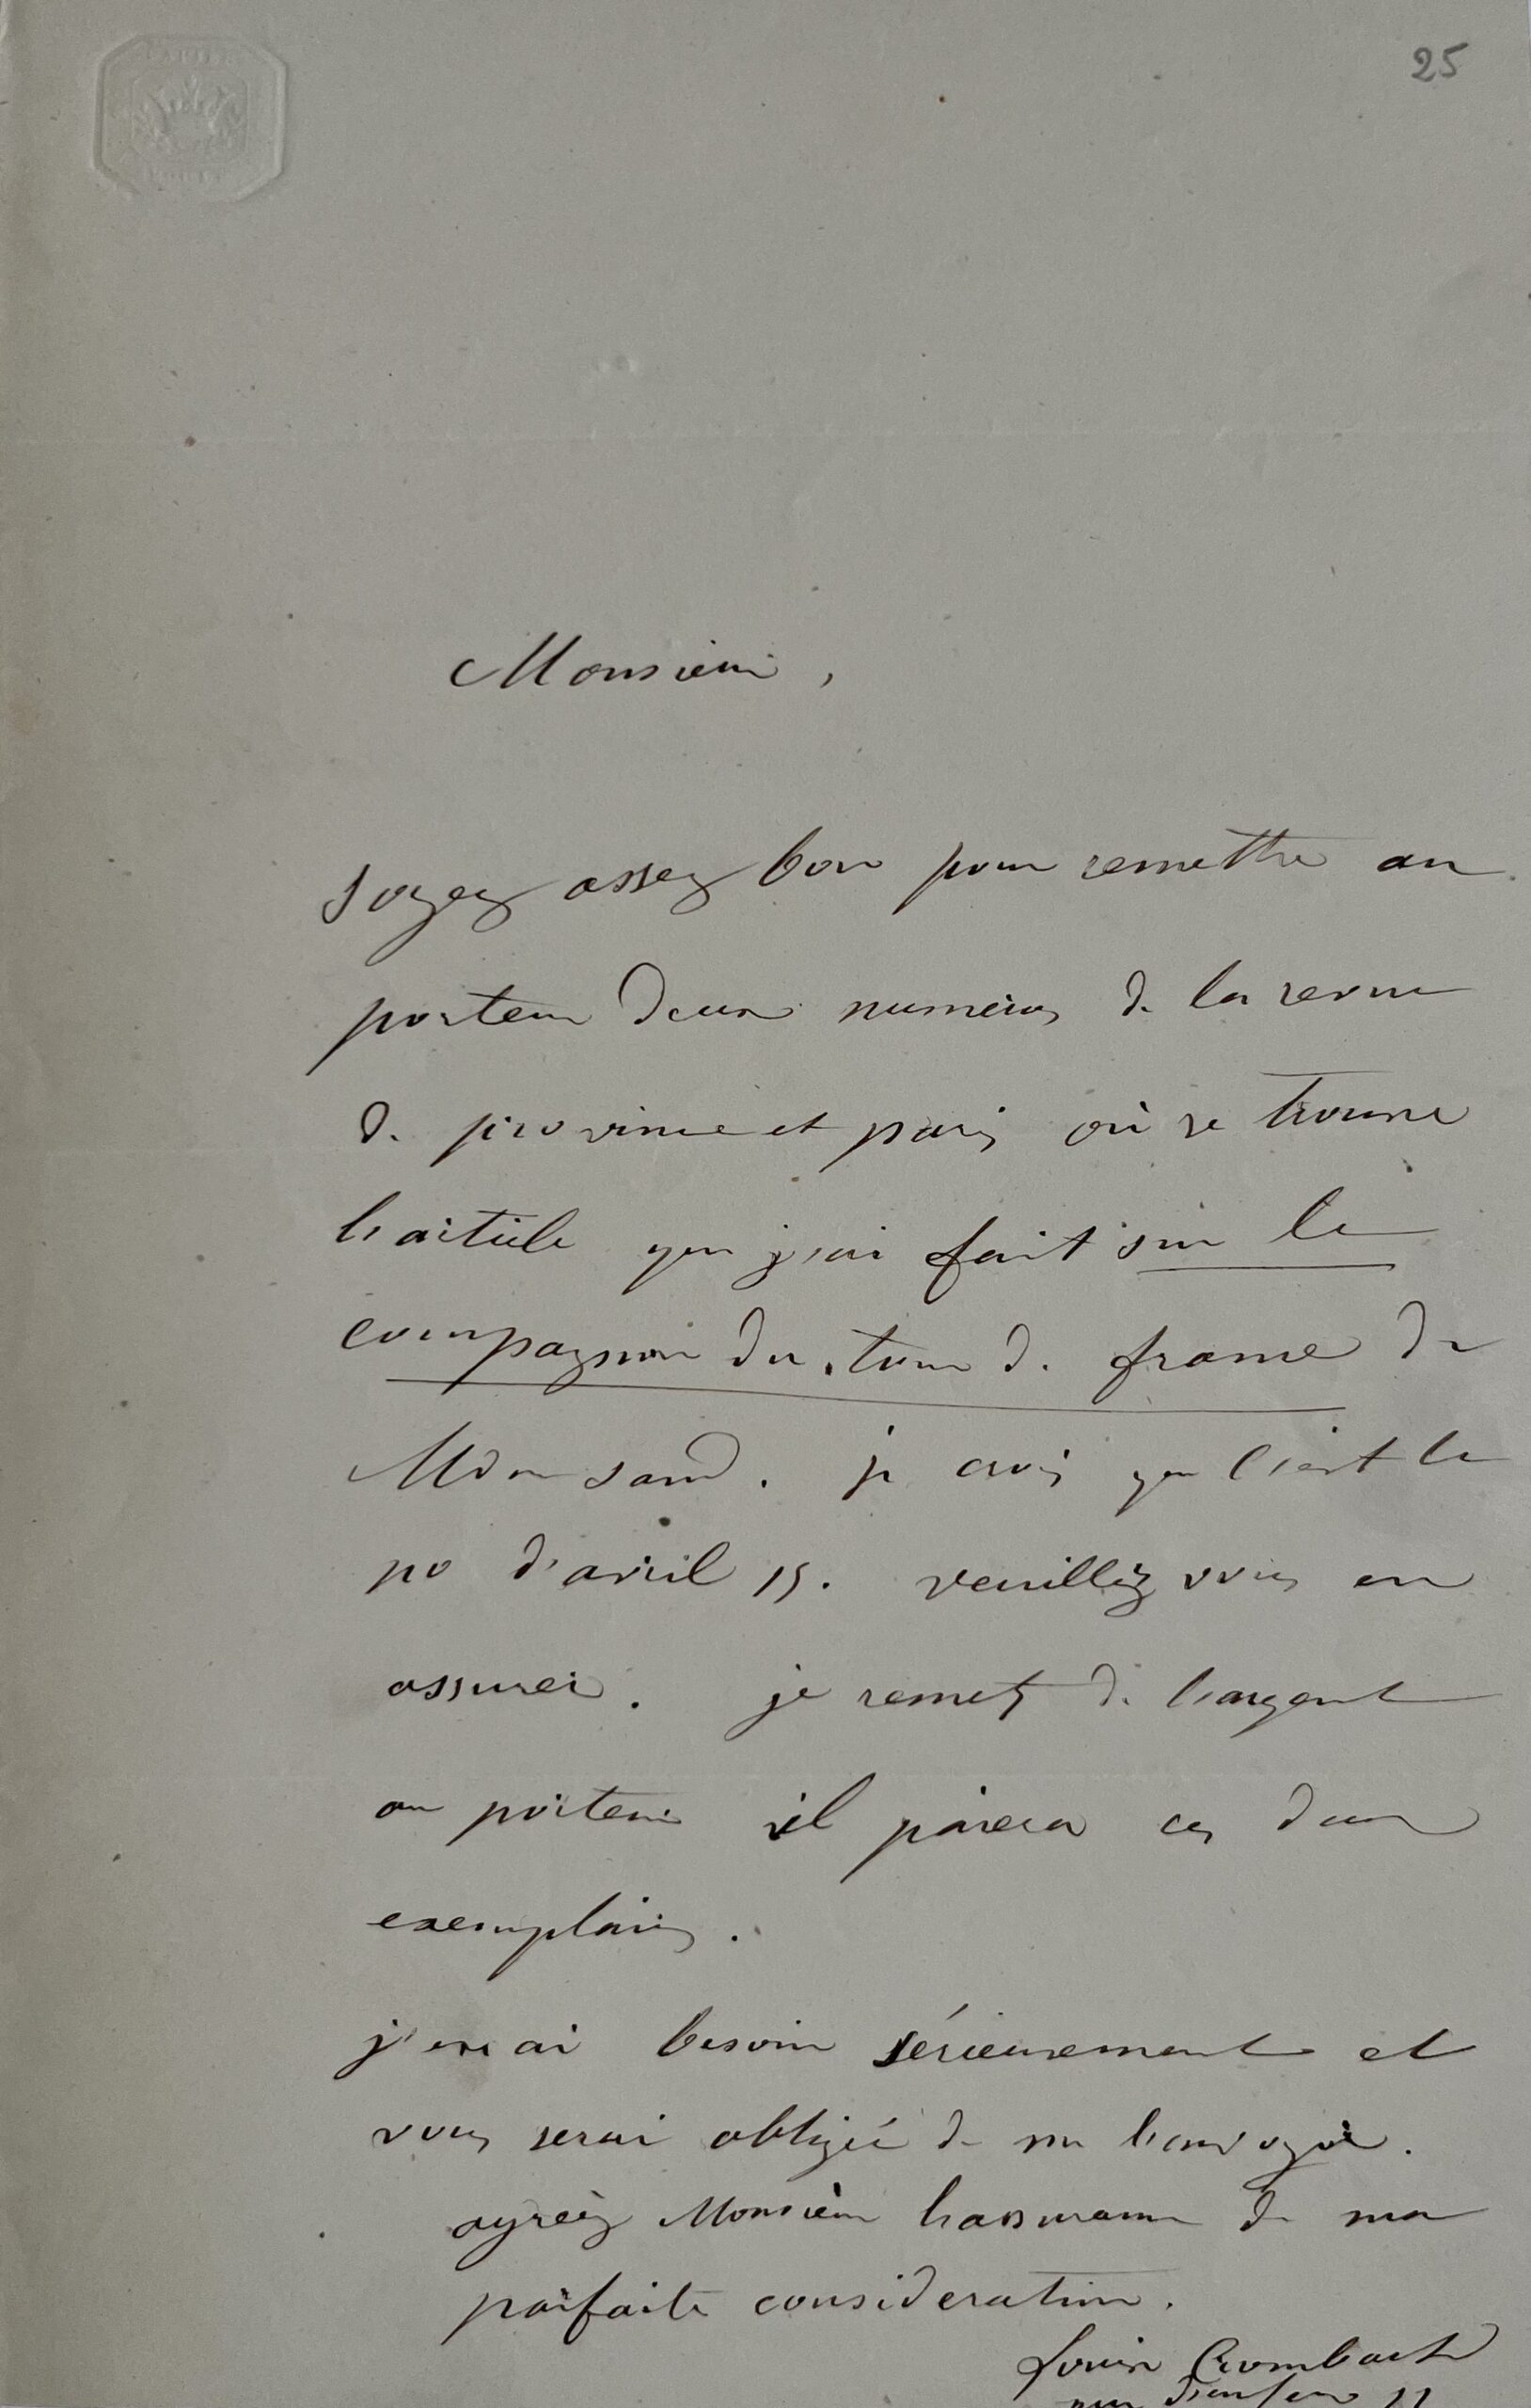 25
Monsieur,
soyez assez bon pour remettre au
porteur deux numéros de la revue
de province et paris où se trouve
l'article que j'ai fait sur le
compagnon du tour de france de
Mdme sand. je crois que c'est le
no d'avril 15. veuillez vous en
assurer. je remets de l'argent
au porteur il paiera ces deux
exemplaires.
j'en ai besoin sérieusement et
vous serai obligée de me l'envoyer.
agréez Monsieur l'assurance de ma
parfaite consideration.
Louise Crombach
rue 11